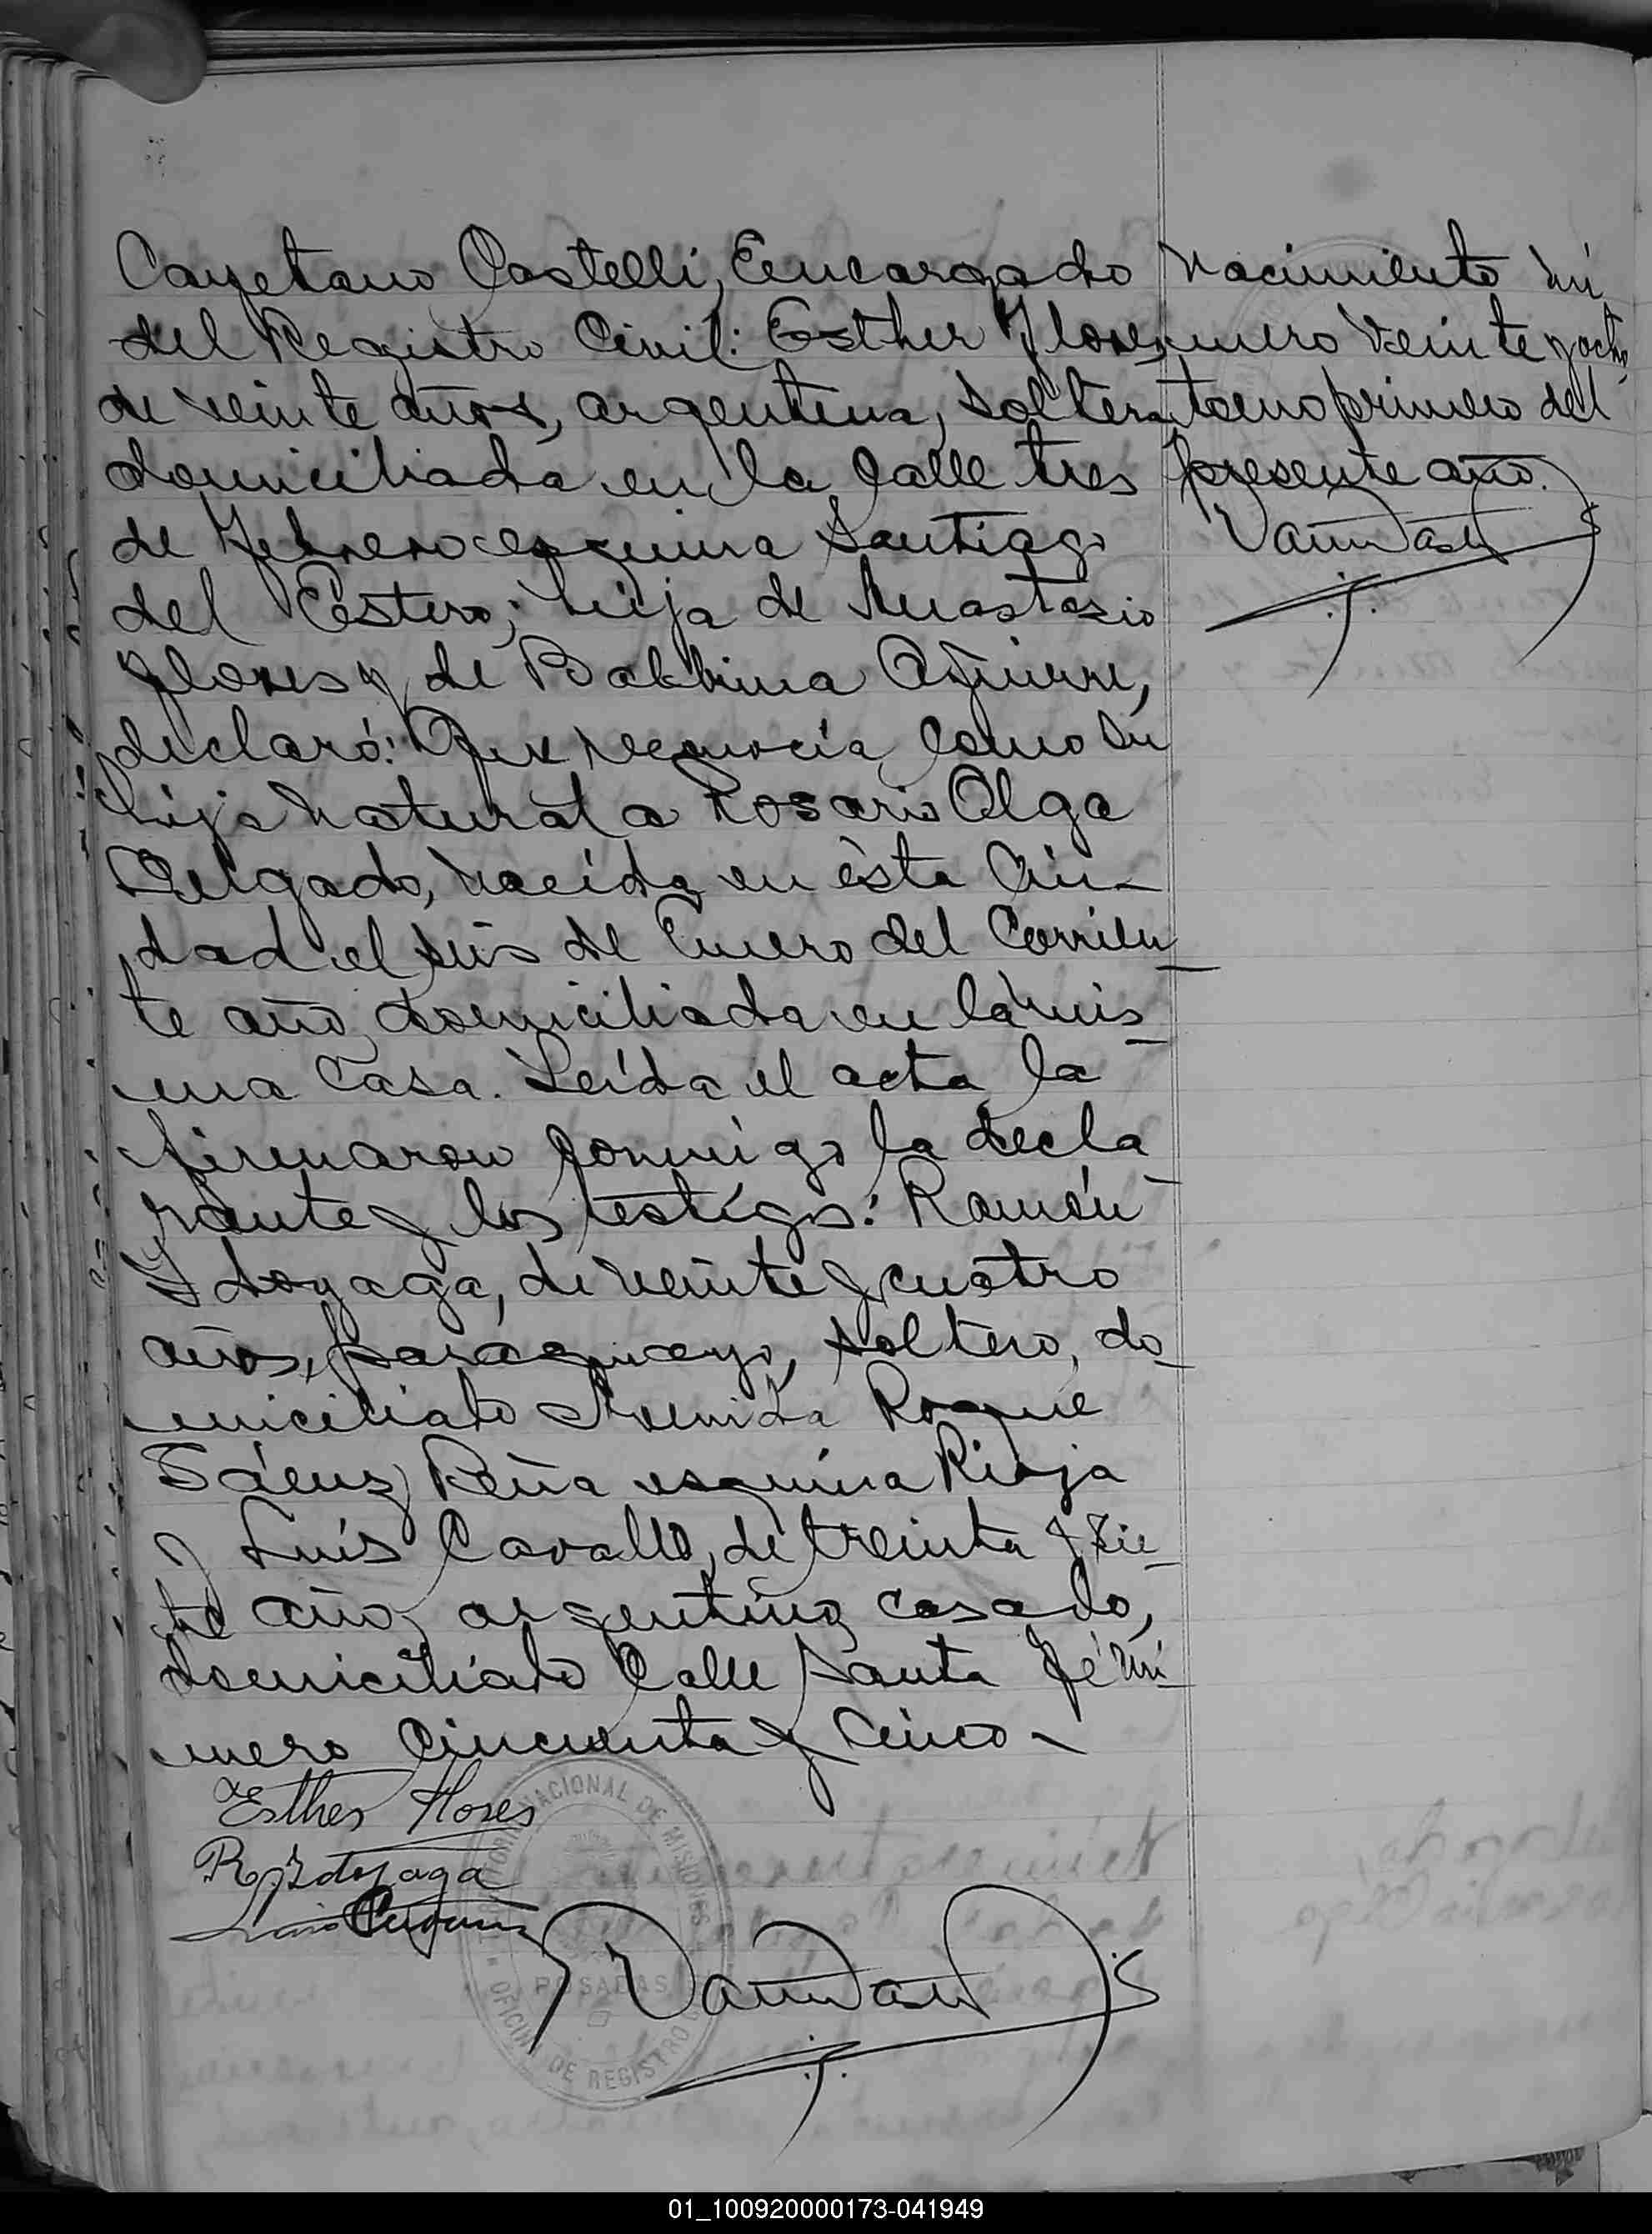 Cayetano Castelli, Encargado
del Registro Civil: Esther Flores,
de veinte años, argentina, soltera
domiciliada en la Calle tres
de Febrero esquina Santiago
del Estero; hija de Anastasio
Flores y de Balbina Aguirre,
declaró: Que reconocía como su
hija natural a Rosario Olga
Delgado, nacida en ésta Ciu-
dad el seis de Enero del Corrien-
te año, domiciliada en la mis-
ma Casa. Leída el acta, la
firmaron conmigo la decla-
rante y los testigos: Ramón
Ydoyaga, de veinte y cuatro
años, paraguayo, soltero, do-
miciliado Avenida Roque
Sáenz Peña esquina Rioja
y Luis Cavallo, de treinta y sie-
te años, argentino, casado,
domiciliado Calle Santa Fé nú-
mero Cincuenta y Cinco -
Nacimiento nú
mero veinte y ocho,
tomo primero del
presente año.
Esther Flores
R. Ydoyaga
Luis
TERRITORIO NACIONAL DE MISIONES
POSADAS
OFICINA DE REGISTRO
01_100920000173-041949